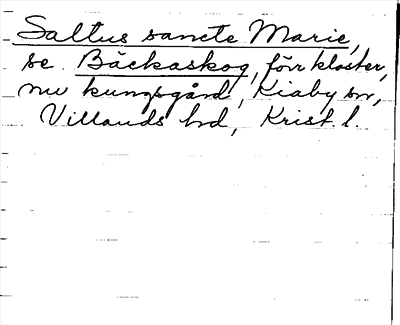 Saltus sancte Marie,
se Bäckaskog, förr kloster,
nu kungsgård, Kiaby sn,
Villands hd, Krist. l.